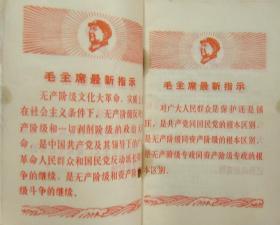 毛主席最新指示
无产阶级文化大革命，实质上
在社会主义条件下，无产阶级反
产阶级和一切剥削阶级的政治大
命，是中国共产党及其领导下的
革命人民群众和国民党反动派长期
争的继续，是无产阶级和资产阶
级斗争的继续。
毛主席最新指示
对广大人民群众是保护还是镇
压，是共产党同国民党的根本区别，
是无产阶级同资产阶级的根本区别，
是无产阶级专政同资产阶级专政的根
本区别。